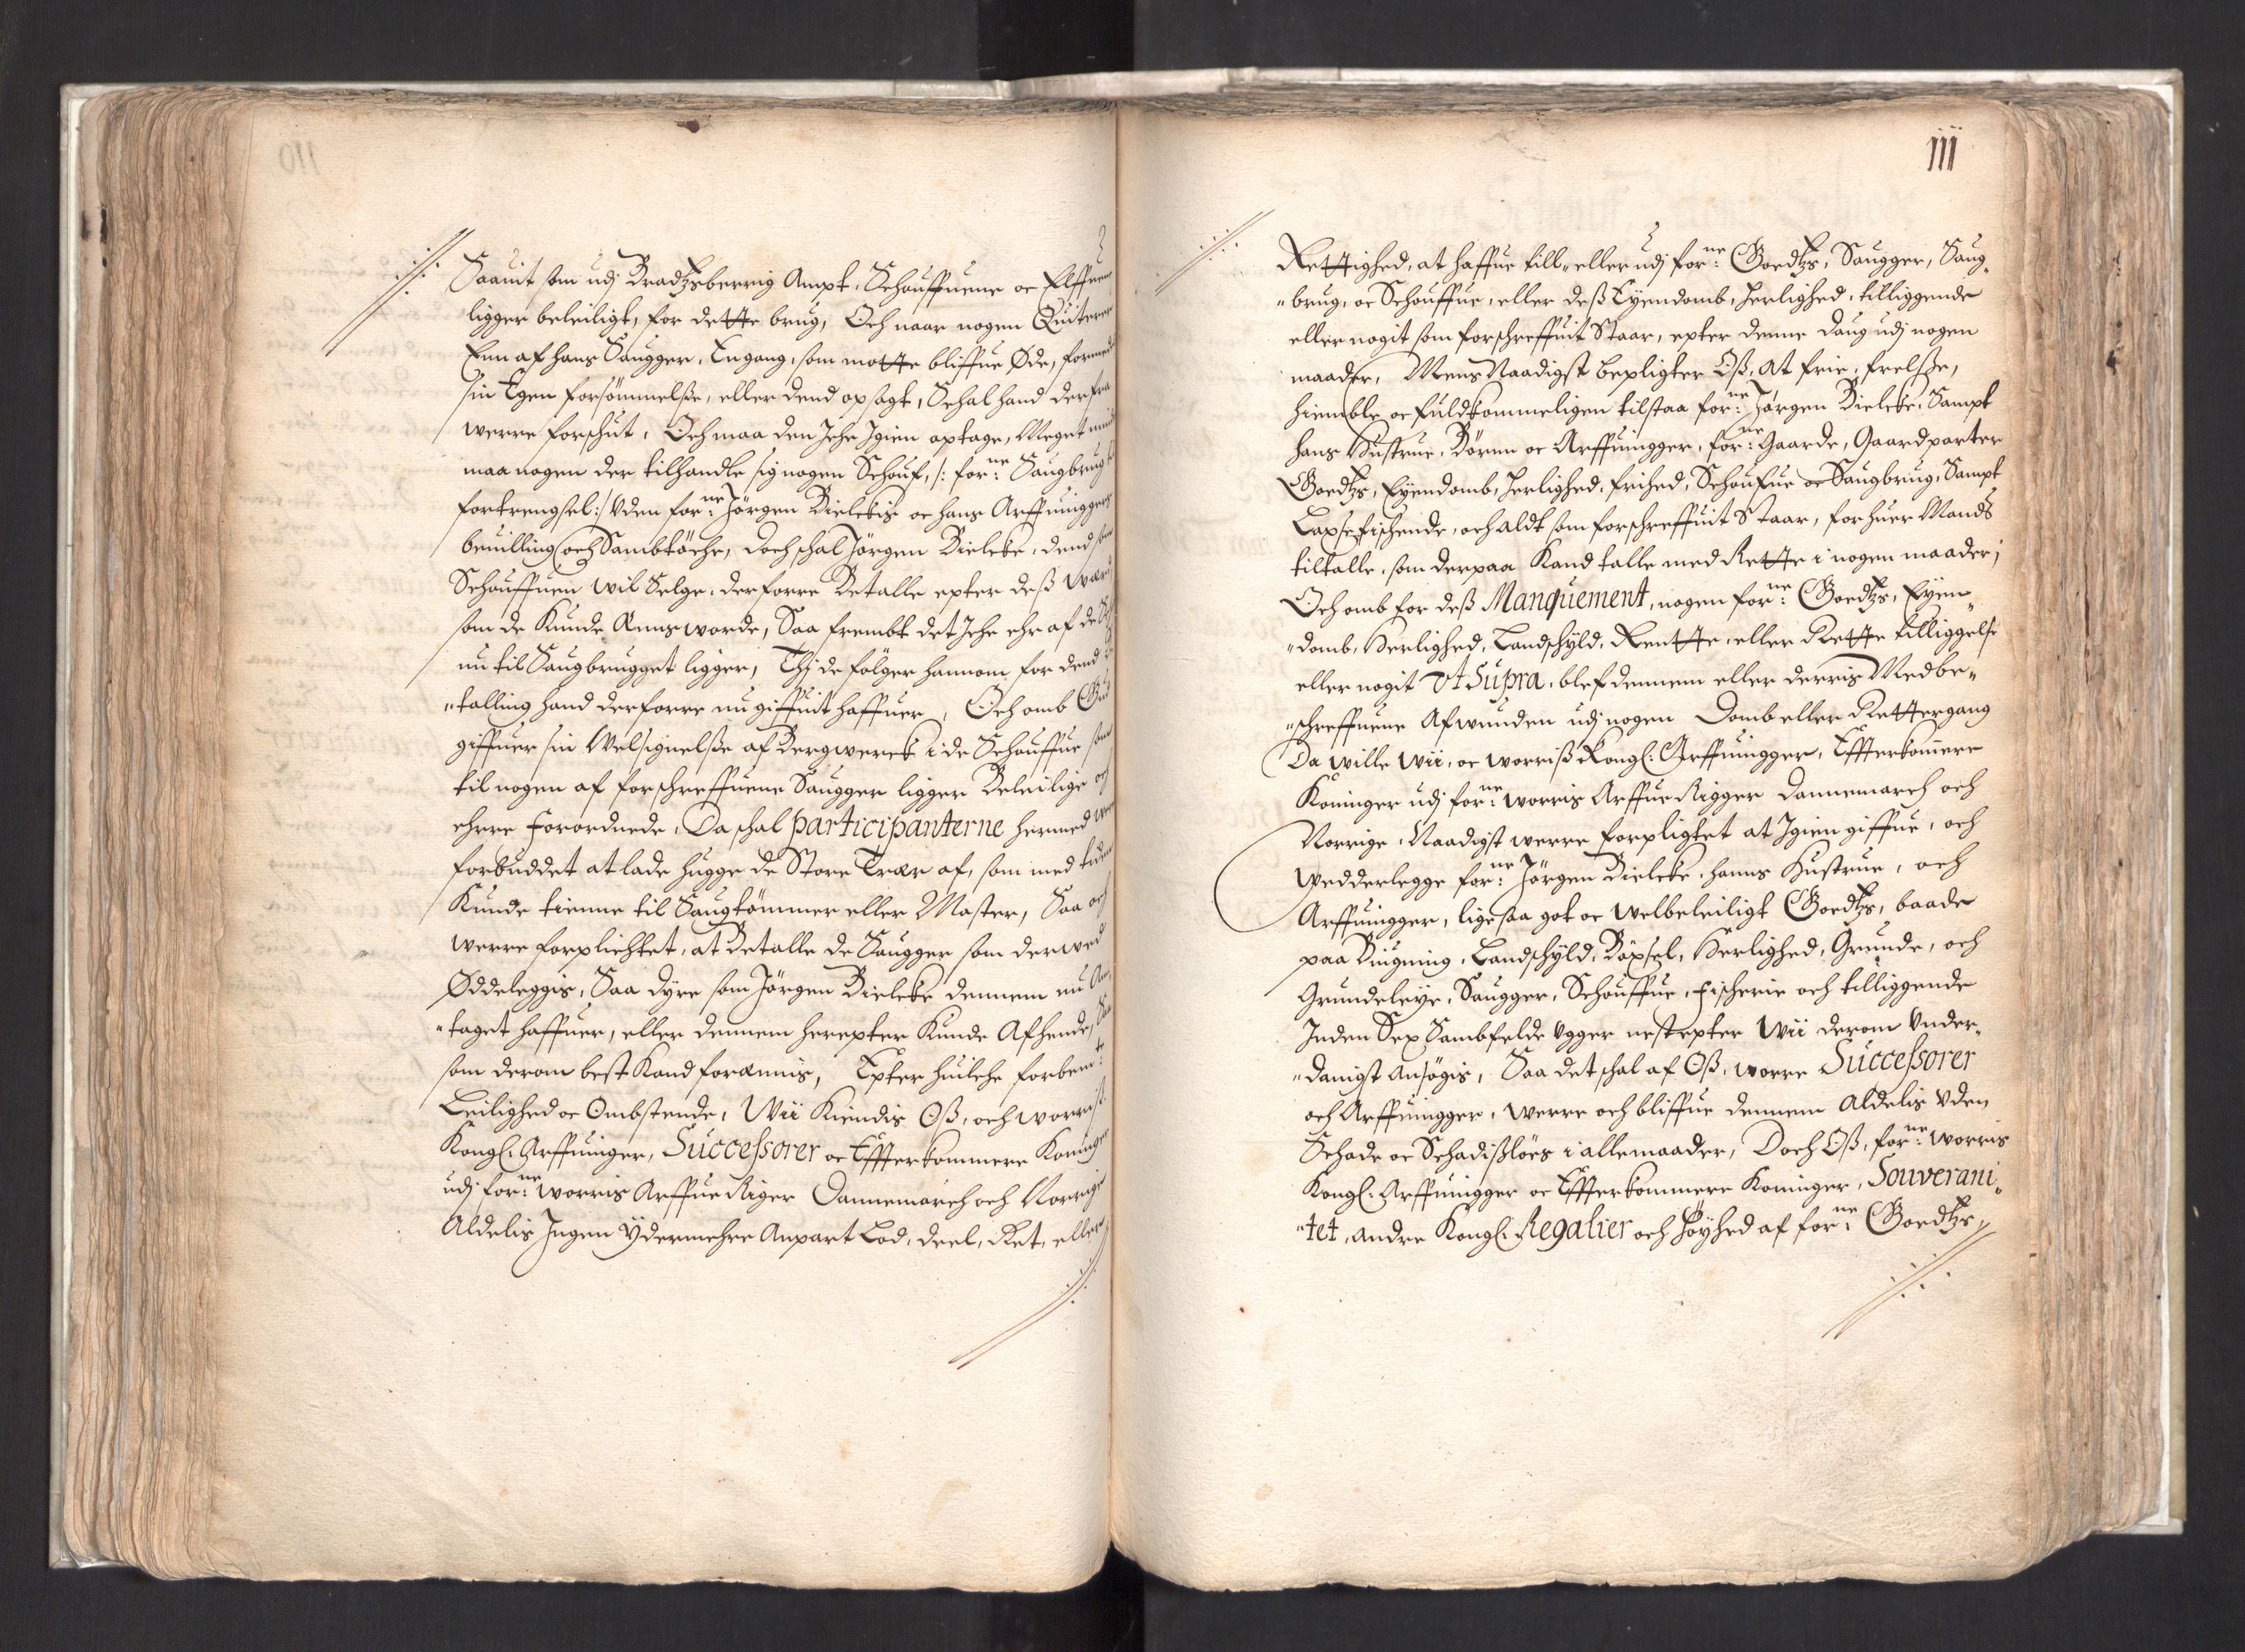 Saauit som udj Bradtzsberrig Ampt, Schouffuene oc Elffuene
ligger beleiligt, for dette brug, Och naar nogen Quiterer
Enn af hans Saugger, Engang, som motte bliffue Øde, formed
sin Egen forsömmelße, eller dend opsagt, Schal hand derfra
werre forschut, Och maa den Iche Igien optage, Meget mind
maa nogen der tilhandle sig nogen Schouf, /: forne: Saugbrug til
fortrengsel :/ Uden forne: Jörgen Bielckis oc hans Arffuinggers
beuilling och Sambtöche, doch schal Jörgen Bielcke, dend som
Schouffuen wil Selge, derforre Betalle epter deß Werd,
som de Kunde Anns worde, Saa frembt det Iche ehr af de
nu til Saugbrugget ligger, Thj de fölger hannom for dend
"talling hand derforre nu giffuit haffuer, Och omb Gud
giffuer sin Welsignelße af Bergwerck i de Schouffue som
til nogen af forschreffuene Saugger ligger Beleilige och
ehrre forordnede, Da schal participanterne hermed were
forbuddet at lade hugge de Store Træer af, som med tiden
Kunde tienne til Saugtömmer eller Master, Saa och
werre forpliehtet, at Betalle de Saugger som derwed
Øddeleggis, Saa dyre som Jörgen Bielcke dennem nu An¸
"taget haffuer, eller dennem herepter Kunde Afhende,
som derom best Kand forænnis, Epter huilche forbemte:
Leilighed oc Ombstende, Wii Kiendis Oß, och worriß
Kongl: Arffuinger, Successorer oc Effterkommere Koninger
udj forne: worris Arffue Riger Dannemarch och Norrige
Aldelis Ingen Ydermehre Anpart Lod, deel, Ret, eller
111
Rettighed, at haffue till "eller udj forne: Goedtzs, Saugger, Saug¸
"brug, oc Schouffue, eller deß Eyendomb, herlighed, tilliggende
eller nogit som forschreffuit Staar, epter denne daug udj nogen
maader, Mens Naadigst bepligter Oß, At frie, frelße,
hiemble oc fuldkommeligen tilstaa forne: Jörgen Bielcke, Sampt
hans Hustrue, Börnn oc Arffuingger, forne: Gaarde, Gaardparter
Goedtzs, Eyendomb, herlighed, frihed, Schoufue oc Saugbrug, Sampt
Laxsefischende, och aldt som forschreffuit Staar, for huer Mands
tiltalle, som derpaa Kand talle med Rette i nogen maader,
Och omb for deß Manquement, nogen forne: Goedtzs, Eyen¸
"domb, Herlighed, Landschyld, Rentte, eller Rette tilliggelse
eller nogit Vt Supra, blef dennem eller derris Medbe¸
"schreffuene Afwunden udj nogen Domb eller Rettergang
Da wille Wii, oc worriß Kongl: Arffuingger, Effterkommere
Koninger udj forne: worris Arffue Rigger Dannemarch och
Norrige, Naadigst werre forpligtet at Igien giffue, och
wedderlegge forne: Jörgen Bielcke, hanns Hustrue, och
Arffuingger, ligesaa got oc welbeleiligt Goedtzs, baade
paa Biugning, Landschyld, Böxsel, Herlighed, Grunde, och
Grundeleye, Saugger, Schouffue, fischerie och tilliggende
Inden Sex Sambfelde Ugger nest epter Wii derom Under¸
"danigst Ansögis, Saa det schal af Oß, worre Successorer
och Arffuingger, werre och bliffue dennem Aldelis Uden
Schade oc Schadißlöes i allemaader, Doch Oß, forne: worris
Kongl: Arffuingger oc Effterkommere Koninger, Souverani¸
"tet, andre Kongl: Regalier och höyhed af forne: Goedtzs